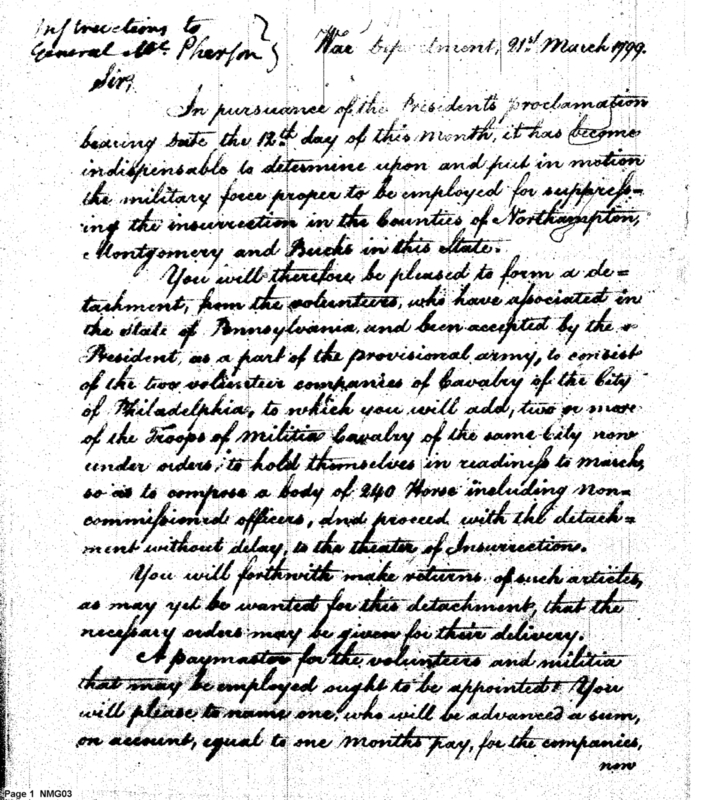 Instructions to
General Mc. Pherson
War Department, 21st March 1799.
Sir,
In pursuance of the Presidents proclamation
bearing date the 12th day of this Month, it has become
indispensable to determine upon and put in motion
the military force proper to be employed for suppress=
ing the insurrection in the Counties of Northampton,
Montgomery and Bucks in this State.
You will therefore be pleased to form a de=
tachment, from the volunteers, who have associated in
the State of Pennsylvania and been accepted by the
President, as a part of the provisional army, to consist
of the two volunteer companies of Cavalry of the City
of Philadelphia, to which you will add, two or more
of the Troops of Militia Cavalry of the same City now
under orders, to hold themselves in readiness to march,
so as to compose a body of 240 Horse including non=
commissioned officers, and proceed with the detach=
ment without delay, to the theater of Insurrection.
You will forthwith make returns of such articles,
as may yet be wanted for this detachment, that the
necessary orders may be given for their delivery.
A paymaster for the volunteers and militia
that may be employed ought to be appointed. You
will please to name one, who will be advanced a sum,
on account, equal to one months pay, for the companies,
now
Page 1 NMG03